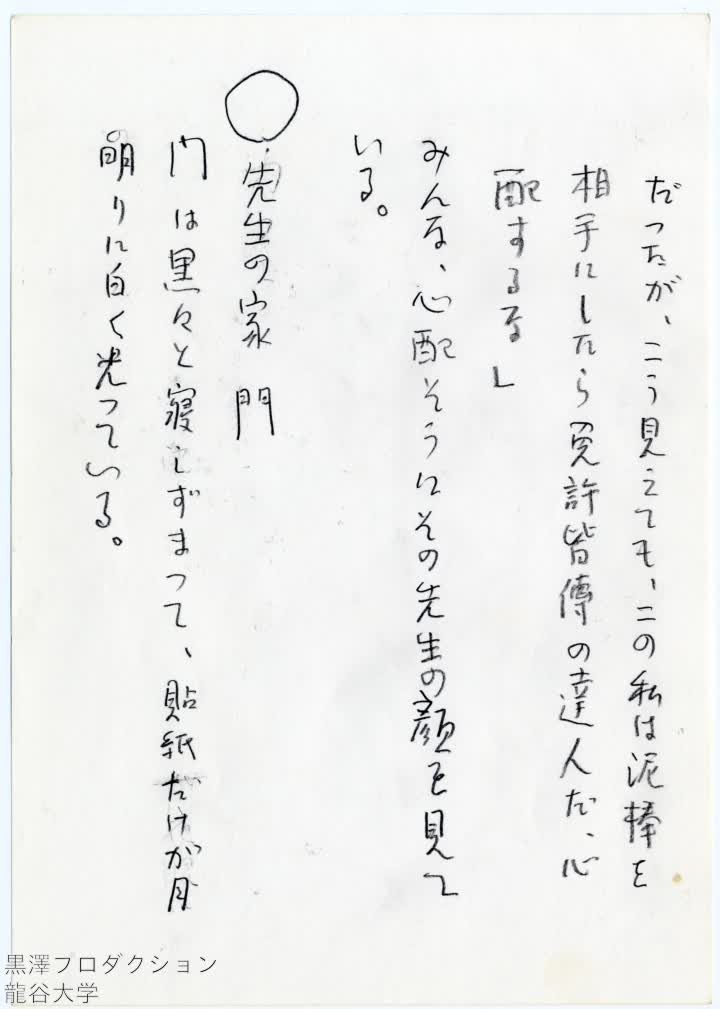 だったが、こう見えても、この私は泥棒を
相手にしたら免許皆傳の達人だ、心
配するな」
みんな、心配そうにその先生の顔を見て
いる。
○先生の家 門
門は黒々と寝しずまって、貼紙だけが月
明りに白く光っている。
黒澤プロダクション
龍谷大学